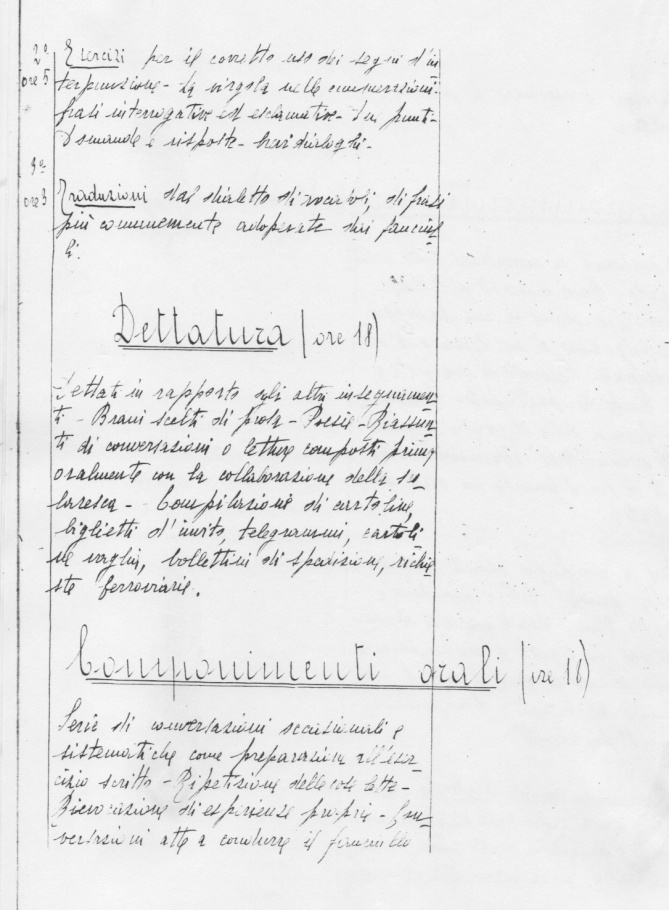 2º Esercizi per il corretto uso dei segni d'in
ore 5 terpunzione - La virgola nelle enumerazioni -
frasi interrogative ed esclamative - I punti -
Domande e risposte - brevi dialoghi -
3º
ore 3 Traduzioni dal dialetto di vocaboli, di frasi
più comunemente adoperate dai fanciul
li.
Dettatura (ore 18)
Dettati in rapporto agli altri insegnamen
ti - Brani scelti di prosa - Poesie - Riassun
ti di conversazioni o letture composti prima
oralmente con la collaborazione della sco
laresca - Compilazione di cartoline,
biglietti d'invito, telegrammi, cartoli
ne vaglia, bollettini di spedizione, richie
ste ferroviarie.
Componimenti orali (ore 16)
Serie di conversazioni occasionali e
sistematiche come preparazione all'eser
cizio scritto - Ripetizione delle cose lette -
Rievocazione di esperienze proprie - Con
versazioni atte a condurre il fanciullo